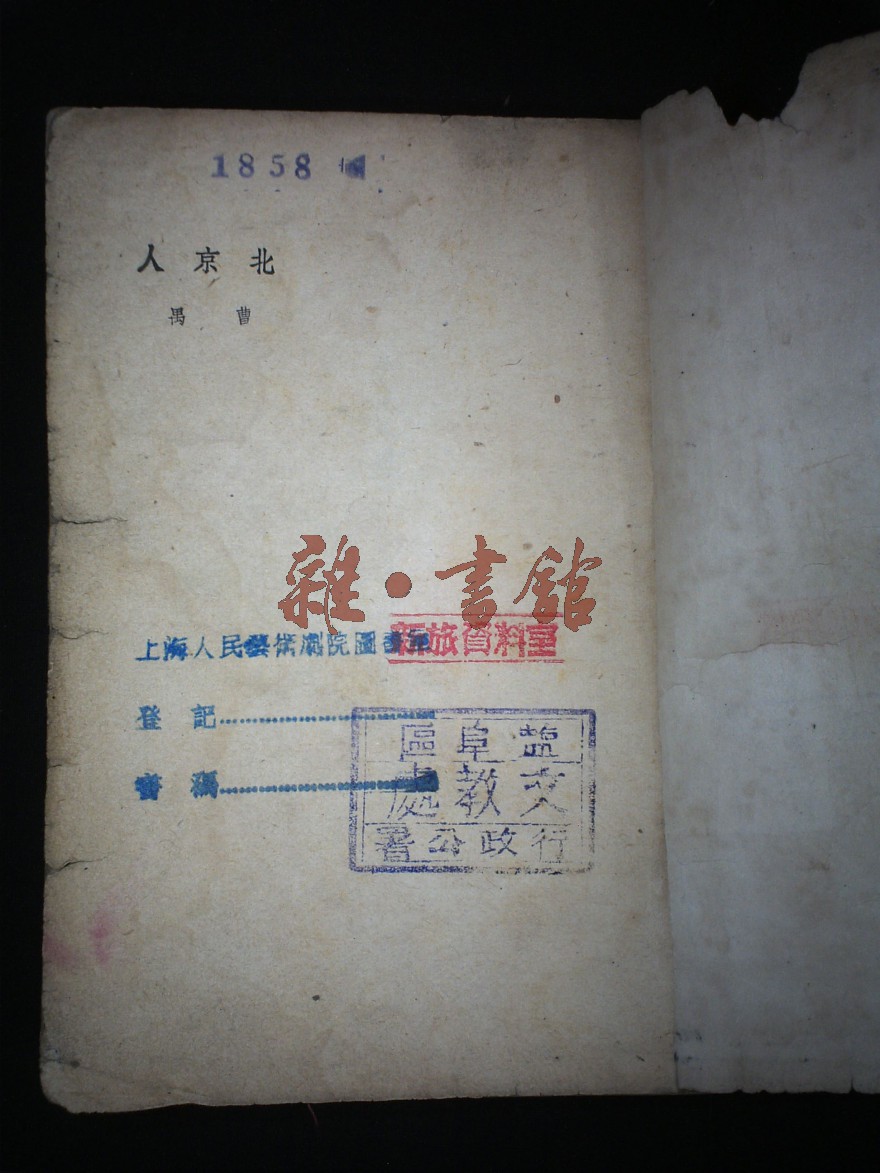 1858
北京人
曹禺
雜·書館
上海人民藝術劇院圖書
新旅資料室
登記
盐阜區
文教處
行政公署